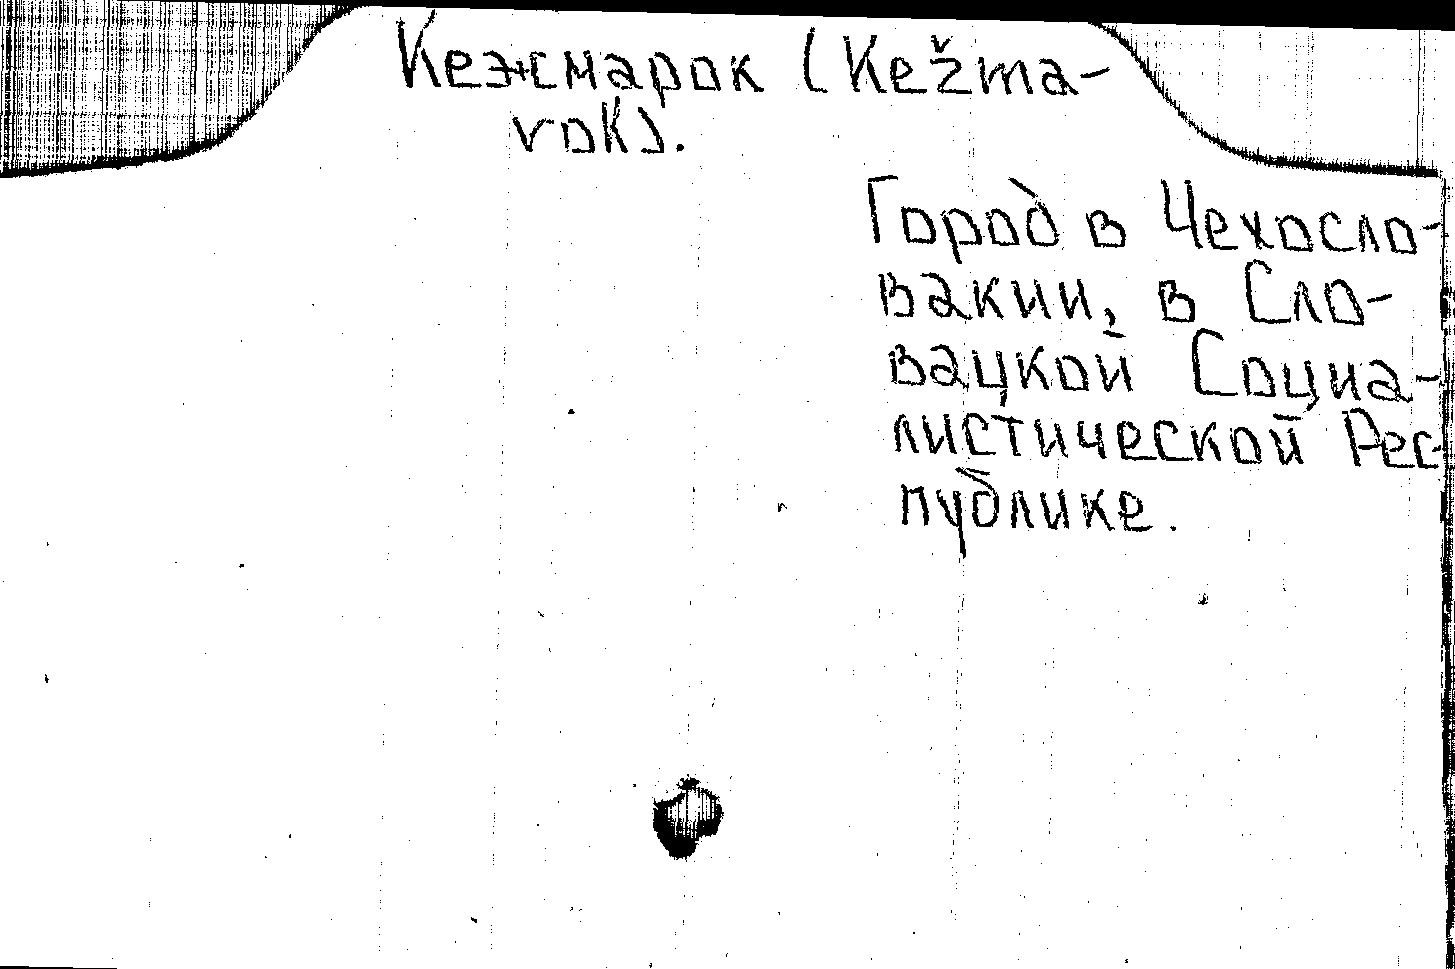 Кежмарок (Kežma-
rok).
Город в Чехосло-
вакии, в Сло-
вацкой Социа-
листической Рес-
публике.